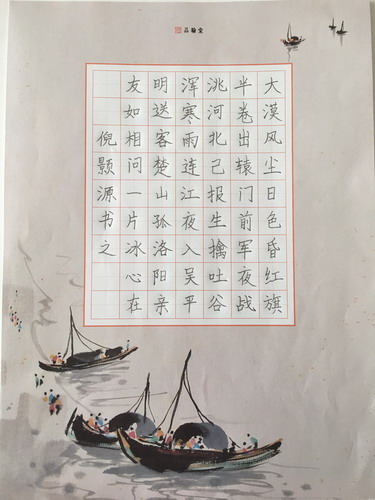 品翰堂
大漠风尘日色昏红旗
半卷出辕门前军夜战
洮河北己报生擒吐谷
浑寒雨连江夜入吴平
明送客楚山孤洛阳亲
友如相问一片冰心在
倪颢源书之